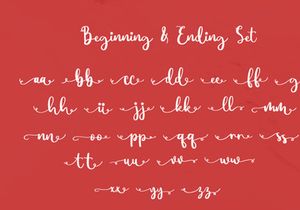 Beginning & Ending Set
aa bb cc dd ee ff g
hh ii jj kk ll mm
nn oo pp qq rr ss
tt uu vv ww
xx yy zz